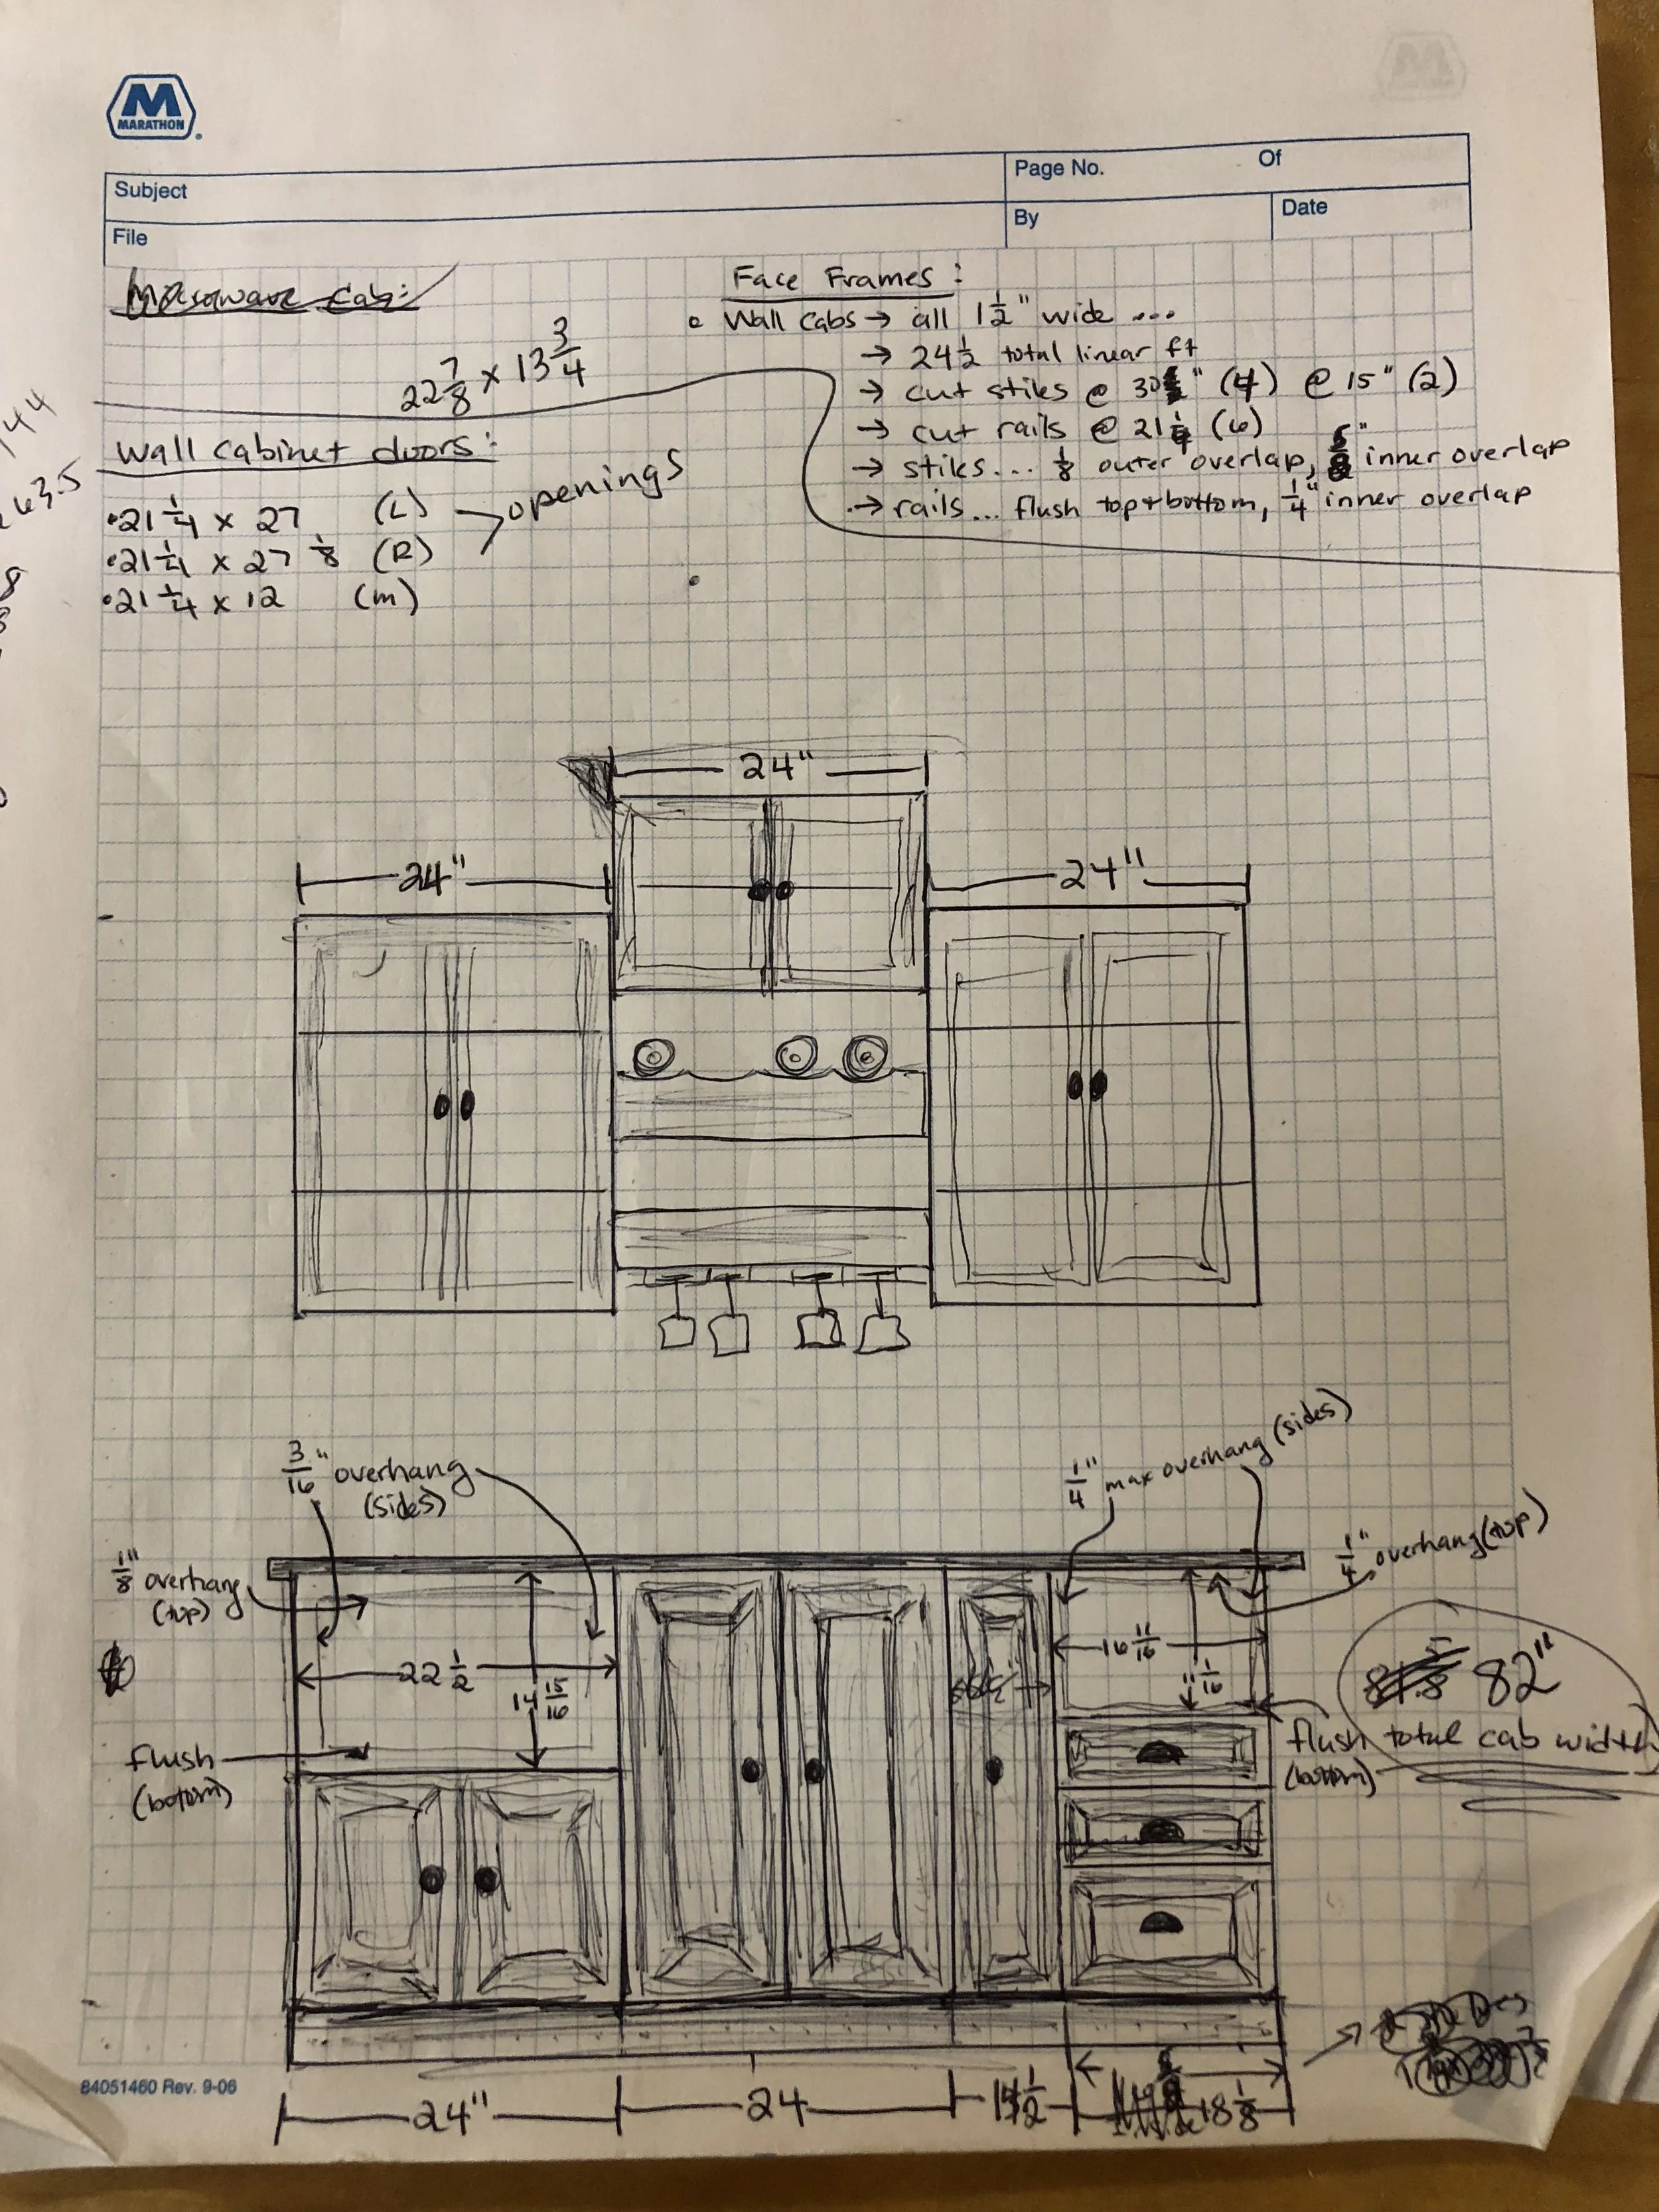 M
MARATHON®
Subject
Page No. Of
File
By
Date
Microwave Cab:
22 7/8 x 13 3/4
Face Frames:
Wall Cabs → all 1 1/2" wide ...
→ 24 1/2 total linear ft
→ cut stiles @ 30" (4) @ 15" (2)
→ cut rails @ 21 1/4 (6)
→ stiles... 1/8 outer overlap, 5/8" inner overlap
→ rails... flush top + bottom, 1/4" inner overlap
144
263.5
8
Wall cabinet doors:
• 21 1/4 x 27 (L)
• 21 1/4 x 27 1/8 (R)
openings
• 21 1/4 x 12 (m)
24"
24"
24"
3/16" overhang
(sides)
1/4" max overhang (sides)
1/8" overhang
(top)
1/4" overhang (top)
22 1/2
14 15/16
16 11/16
11 1/16
82"
total cab width
flush
(bottom)
flush
(bottom)
84051460 Rev. 9-06
24"
24
18 1/8